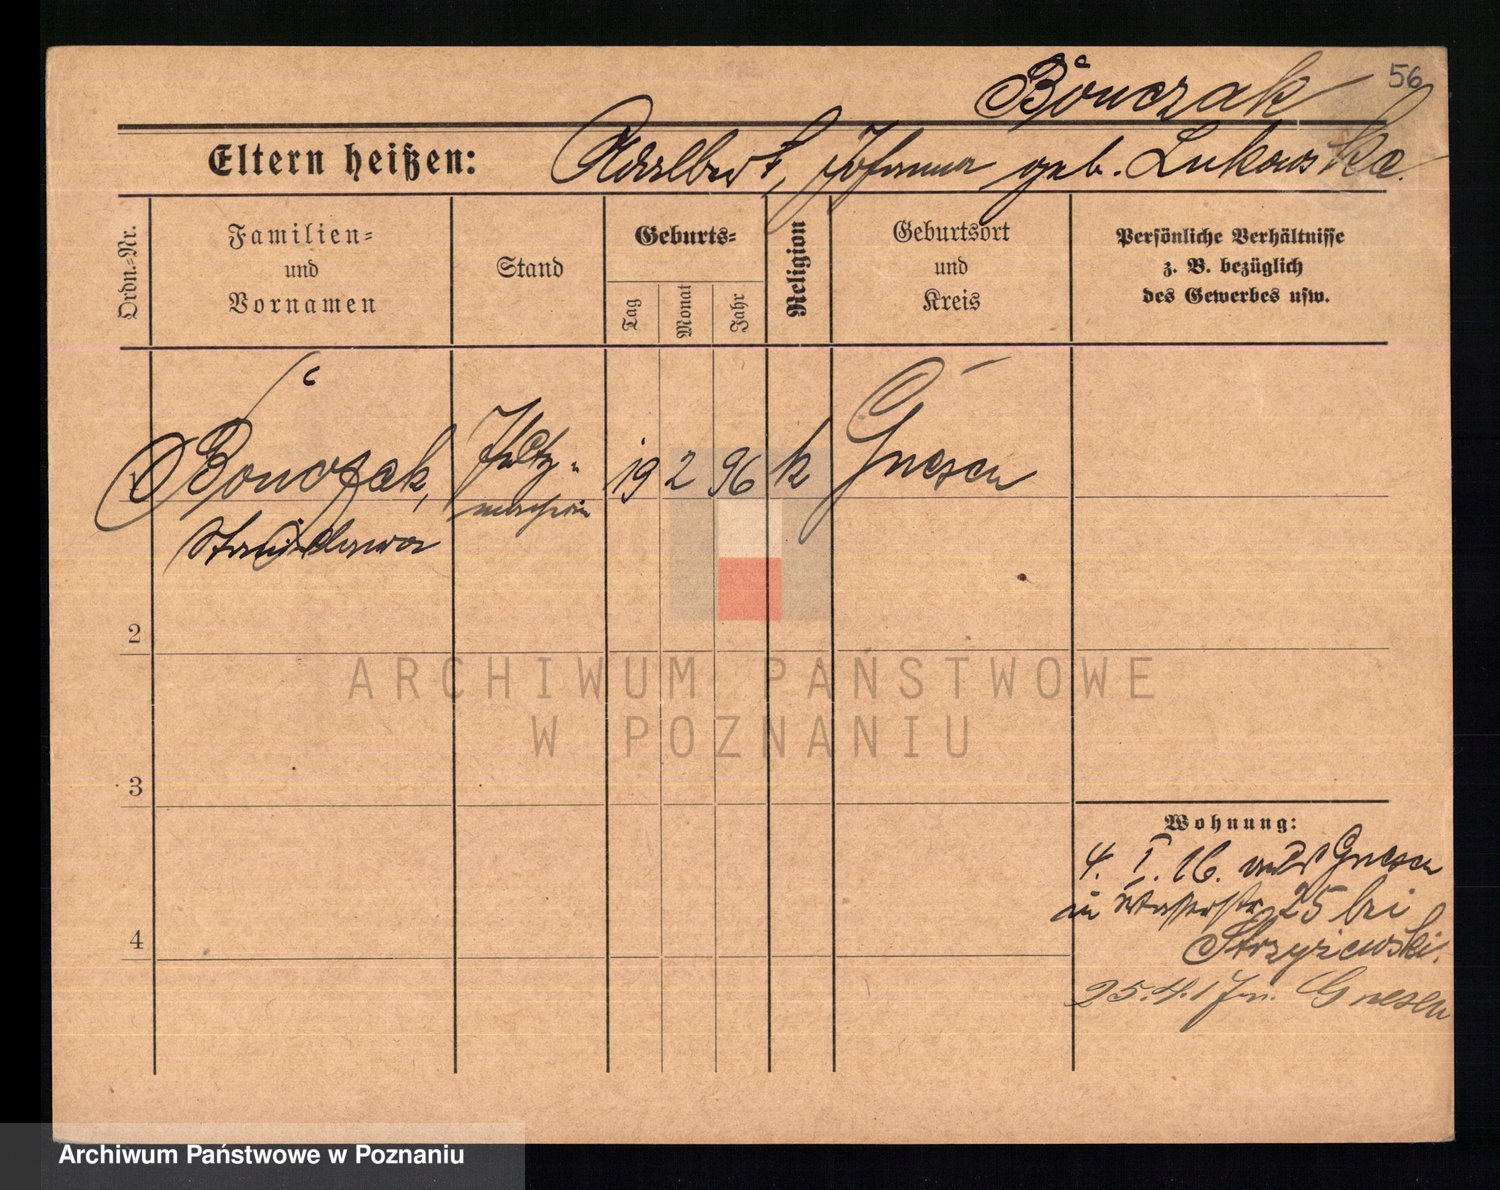 56
Bonczak
Eltern heißen: Adalbert, Johanna geb. Lukowska.
Ordn.=Nr.
Familien=
und
Vornamen
Stand
Geburts=
Tag
Monat
Jahr
Religion
Geburtsort
und
Kreis
Persönliche Verhältnisse
z. B. bezüglich
des Gewerbes usw.
Bonczak, Putz- 19 2 96 k Gnesen
Stanislawa macherin
2
3
4
Wohnung:
4. I. 16. aus Gnesen
in Wasserstr. 25 bei
Strzyżewski.
25.4.17 n. Gnesen
ARCHIWUM PAŃSTWOWE
W POZNANIU
Archiwum Państwowe w Poznaniu